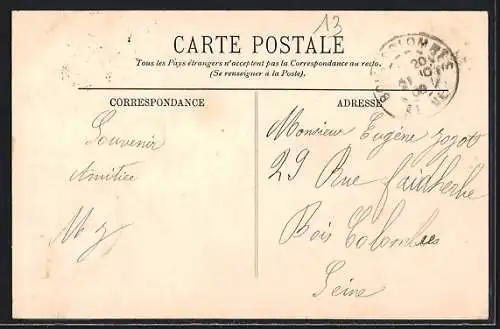 13
CARTE POSTALE
Tous les Pays étrangers n'acceptent pas la Correspondance au recto.
(Se renseigner à la Poste).
CORRESPONDANCE
ADRESSE
Souvenir
Amitiée
Monsieur Eugène
29 Rue Faidherbe
Bois Colombes
Seine